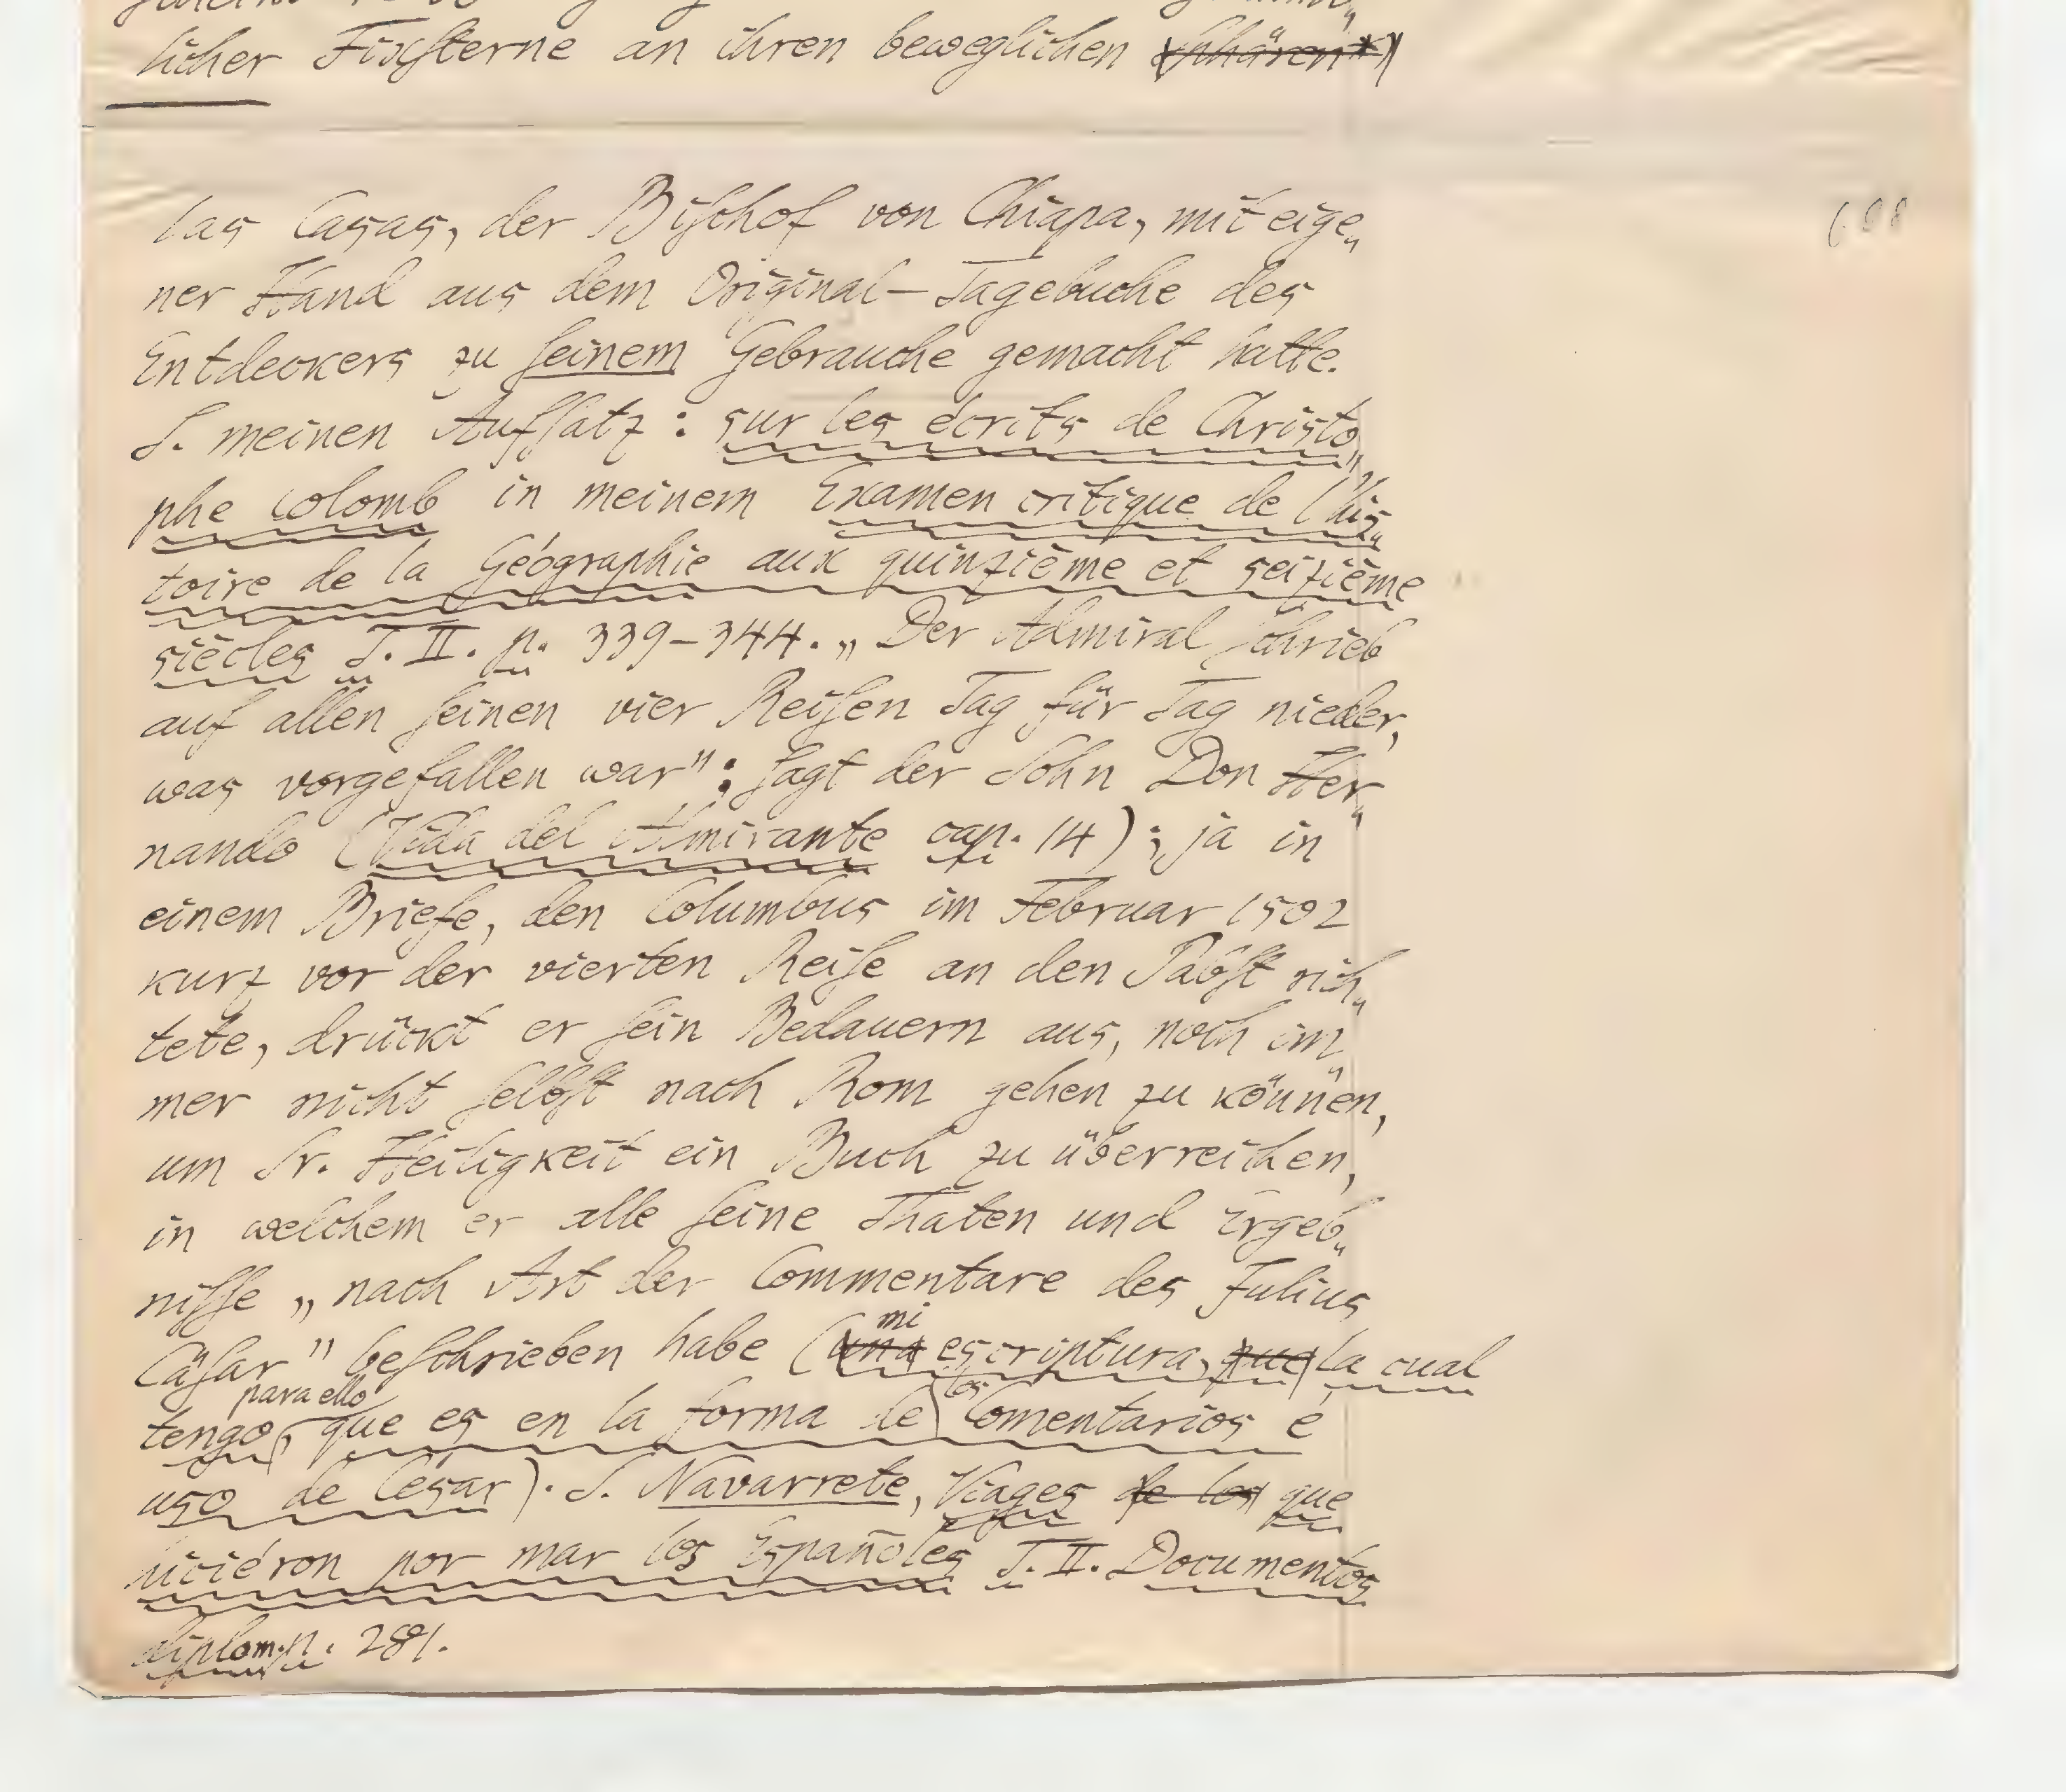 licher Fixsterne an ihren beweglichen Sphären*)
las Casas, der Bischof von Chiapa, mit eige„
ner Hand aus dem Original-Tagebuche des
Entdeckers zu seinem Gebrauche gemacht hatte.
S. meinen Aufsatz: sur les écrits de Christo„
phe Colomb in meinem Examen critique de l'his„
toire de la Géographie aux quinzième et seizième
siècles T. II. p. 339-344. „Der Admiral schrieb
auf allen seinen vier Reisen Tag für Tag nieder,
was vorgefallen war"; sagt der Sohn Don Her„
nando (Vida del Almirante cap. 14); ja in
einem Briefe, den Columbus im Februar 1502
kurz vor der vierten Reise an den Pabst rich„
tete, drückt er sein Bedauern aus, noch im„
mer nicht selbst nach Rom gehen zu können,
um Sr. Heiligkeit ein Buch zu überreichen,
in welchem er alle seine Thaten und Ergeb„
nisse „nach Art der Commentare des Julius
Cäsar" beschrieben habe (una mi escriptura, que la cual
tengo para ello, que es en la forma de los Comentarios é
uso de César). S. Navarrete, Viages de los que
hiciéron por mar los Españoles T. II. Documentos
diplom. p. 281.